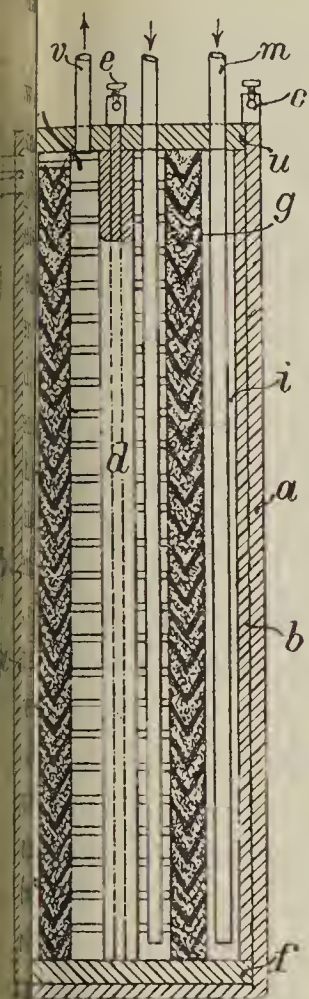 v e m c
u
g
i
d
a
b
f